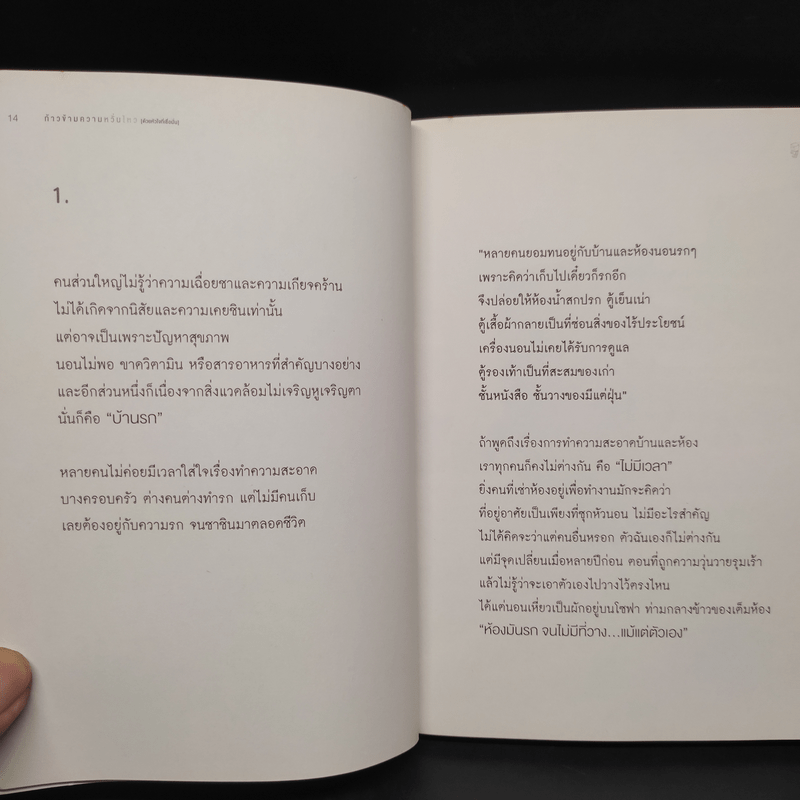 14
ก้าวข้ามความหวั่นไหว
1.
คนส่วนใหญ่ไม่รู้ว่าความเฉื่อยชาและความเกียจคร้าน
ไม่ได้เกิดจากนิสัยและความเคยชินเท่านั้น
แต่อาจเป็นเพราะปัญหาสุขภาพ
นอนไม่พอ ขาดวิตามิน หรือสารอาหารที่สำคัญบางอย่าง
และอีกส่วนหนึ่งก็เนื่องจากสิ่งแวดล้อมไม่เจริญหูเจริญตา
นั่นก็คือ “บ้านรก”
หลายคนไม่ค่อยมีเวลาใส่ใจเรื่องทำความสะอาด
บางครอบครัว ต่างคนต่างทำรก แต่ไม่มีคนเก็บ
เลยต้องอยู่กับความรก จนชาชินมาตลอดชีวิต
“หลายคนยอมทนอยู่กับบ้านและห้องนอนรกๆ
เพราะคิดว่าเก็บไปเดี๋ยวก็รกอีก
จึงปล่อยให้ห้องน้ำสกปรก ตู้เย็นเน่า
ตู้เสื้อผ้ากลายเป็นที่ซ่อนสิ่งของไร้ประโยชน์
เครื่องนอนไม่เคยได้รับการดูแล
ตู้รองเท้าเป็นที่สะสมของเก่า
ชั้นหนังสือ ชั้นวางของมีแต่ฝุ่น”
ถ้าพูดถึงเรื่องการทำความสะอาดบ้านและห้อง
เราทุกคนก็คงไม่ต่างกัน คือ “ไม่มีเวลา”
ยิ่งคนที่เช่าห้องอยู่เพื่อทำงานมักจะคิดว่า
ที่อยู่อาศัยเป็นเพียงที่ซุกหัวนอน ไม่มีอะไรสำคัญ
ไม่ได้คิดจะว่าแต่คนอื่นหรอก ตัวฉันเองก็ไม่ต่างกัน
แต่มีจุดเปลี่ยนเมื่อหลายปีก่อน ตอนที่ถูกความวุ่นวายรุมเร้า
แล้วไม่รู้ว่าจะเอาตัวเองไปวางไว้ตรงไหน
ได้แต่นอนเหี่ยวเป็นผักอยู่บนโซฟา ท่ามกลางข้าวของเต็มห้อง
“ห้องมันรก จนไม่มีที่วาง...แม้แต่ตัวเอง”